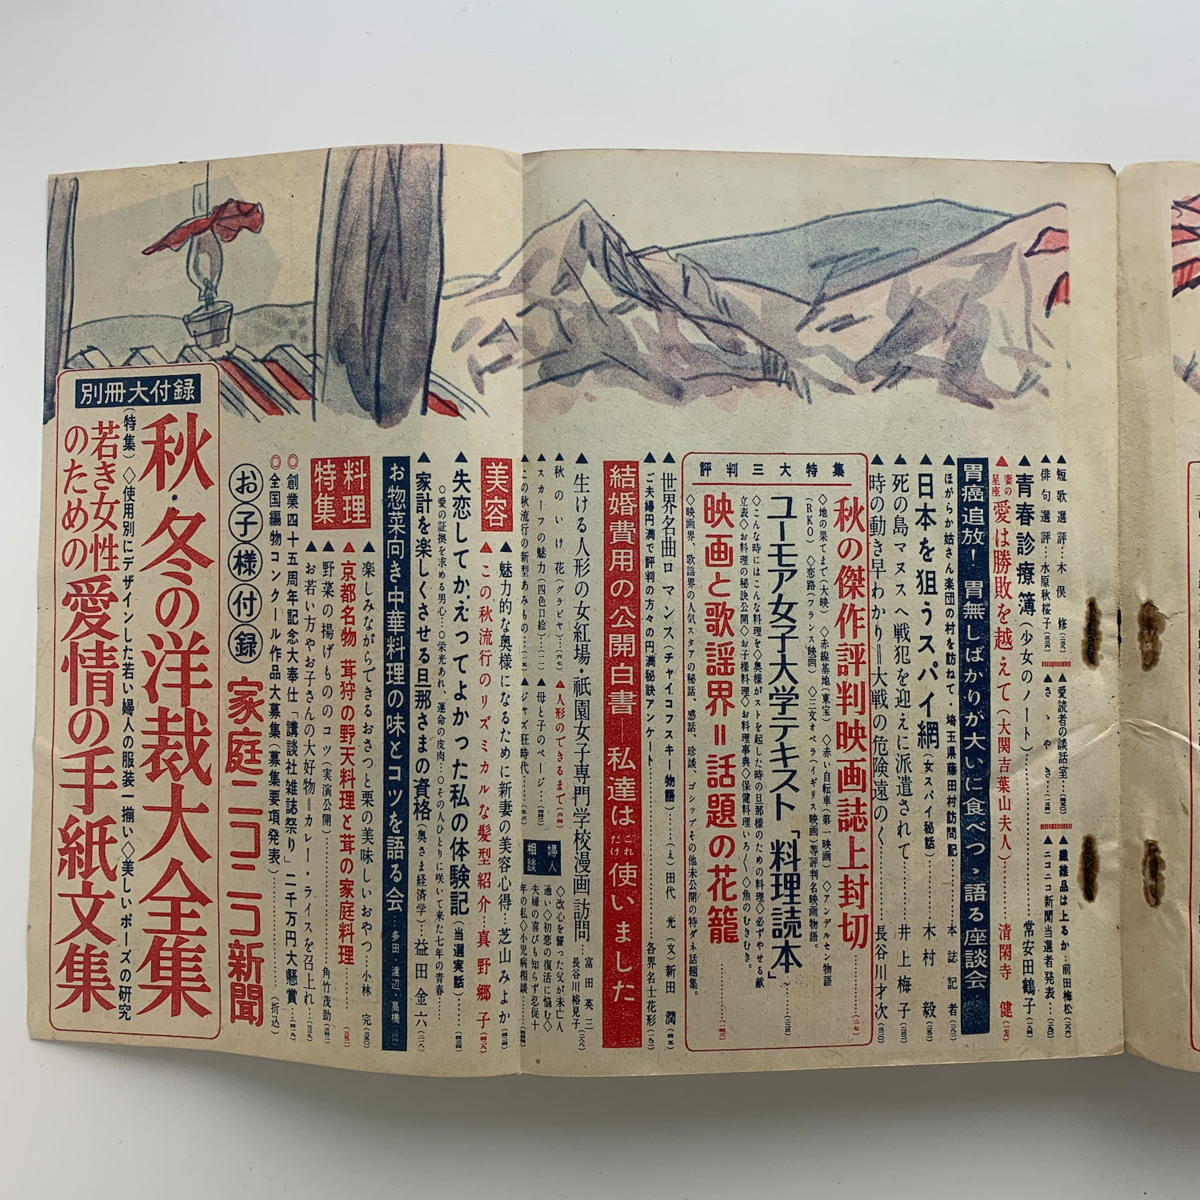 ▲短歌選評…木俣修
▲愛読者の談話室
▲繊維品は上るか…前田梅松
▲俳句選評…水原秋桜子
▲さゝやき
▲ニコニコ新聞当選者発表
▲青春診療簿(少女のノート)…常安田鶴子
▲妻の星座 愛は勝敗を越えて(大関吉葉山夫人)…清閑寺健
胃癌追放!胃無しばかりが大いに食べつゝ語る座談会
▲ほがらか姑さん楽団の村を訪ねて・埼玉県藤田村訪問記…本誌記者
▲日本を狙うスパイ網(女スパイ秘話)…木村毅
▲死の島マヌスへ戦犯を迎えに派遣されて…井上梅子
▲時の動き早わかり=大戦の危険遠のく…長谷川才次
評判三大特集
秋の傑作評判映画誌上封切
◇地の果てまで(大映)◇赤線基地(東宝)◇赤い自転車(第一映画)◇アンデルセン物語
(RKO)◇恋路(フランス映画)◇三文オペラ(イギリス映画)等評判名映画物語。
ユーモア女子大学テキスト「料理読本」
◇こんな時にはこんな料理を◇奥様がストを起した時の旦那様のための料理◇必ずやせる献
立表◇お料理の秘訣公開◇お子様料理◇お料理事典◇保健料理いろ〱◇魚のむきむき。
映画と歌謡界=話題の花籠
◇映画界、歌謡界の人気スタアの秘話、感話、珍談、ゴシップその他未公開の特ダネ話題集。
▲世界名曲ロマンス(チャイコフスキー物語)…(え)田代光(文)新田潤
▲ご夫婦円満で評判の方々の円満秘訣アンケート…各界名士花形
結婚費用の公開白書―私達はこれだけ使いました
▲生ける人形の女紅場・祇園女子専門学校漫画訪問…富田英三 長谷川裕見子
秋のいけ花(グラビヤ)
▲人形のできるまで
▲スカーフの魅力(四色口絵)
▲母と子のページ
▲この秋流行の新型あみもの
▲ジャズ狂時代
婦人相談
◇改心を誓った父が未亡人
通い◇初恋の復活に悩む◇
夫婦の喜びも知らず忍従十
年の私◇小児病相談。
美容
▲魅力的な奥様になるために新妻の美容心得…芝山みよか
▲この秋流行のリズミカルな髪型紹介…真野郷子
▲失恋してかえってよかった私の体験記(当選実話)
○愛の証拠を求める男心…○栄光あれ、運命の皮肉…○その人ひとりに咲いて来た七年の青春
▲家計を楽しくさせる旦那さまの資格(奥さま経済学)…益田金六
お惣菜向き中華料理の味とコツを語る会…多田・渡辺・高橋
料理特集
▲楽しみながらできるおさつと栗の美味しいおやつ…小林完
▲京都名物 茸狩の野天料理と茸の家庭料理
▲野菜の揚げもののコツ(実演公開)…角竹茂助
▲お若い方やお子さんの大好物=カレー・ライスを召上れ
◎創業四十五周年記念大奉仕「講談社雑誌祭り」二千万円大懸賞
◎全国編物コンクール作品大募集(募集要項発表)…(折込)
お子様付録 家庭ニコニコ新聞
別冊大付録
秋・冬の洋裁大全集
(特集)◇使用別にデザインした若い婦人の服装一揃い◇美しいポーズの研究
若き女性のための愛情の手紙文集